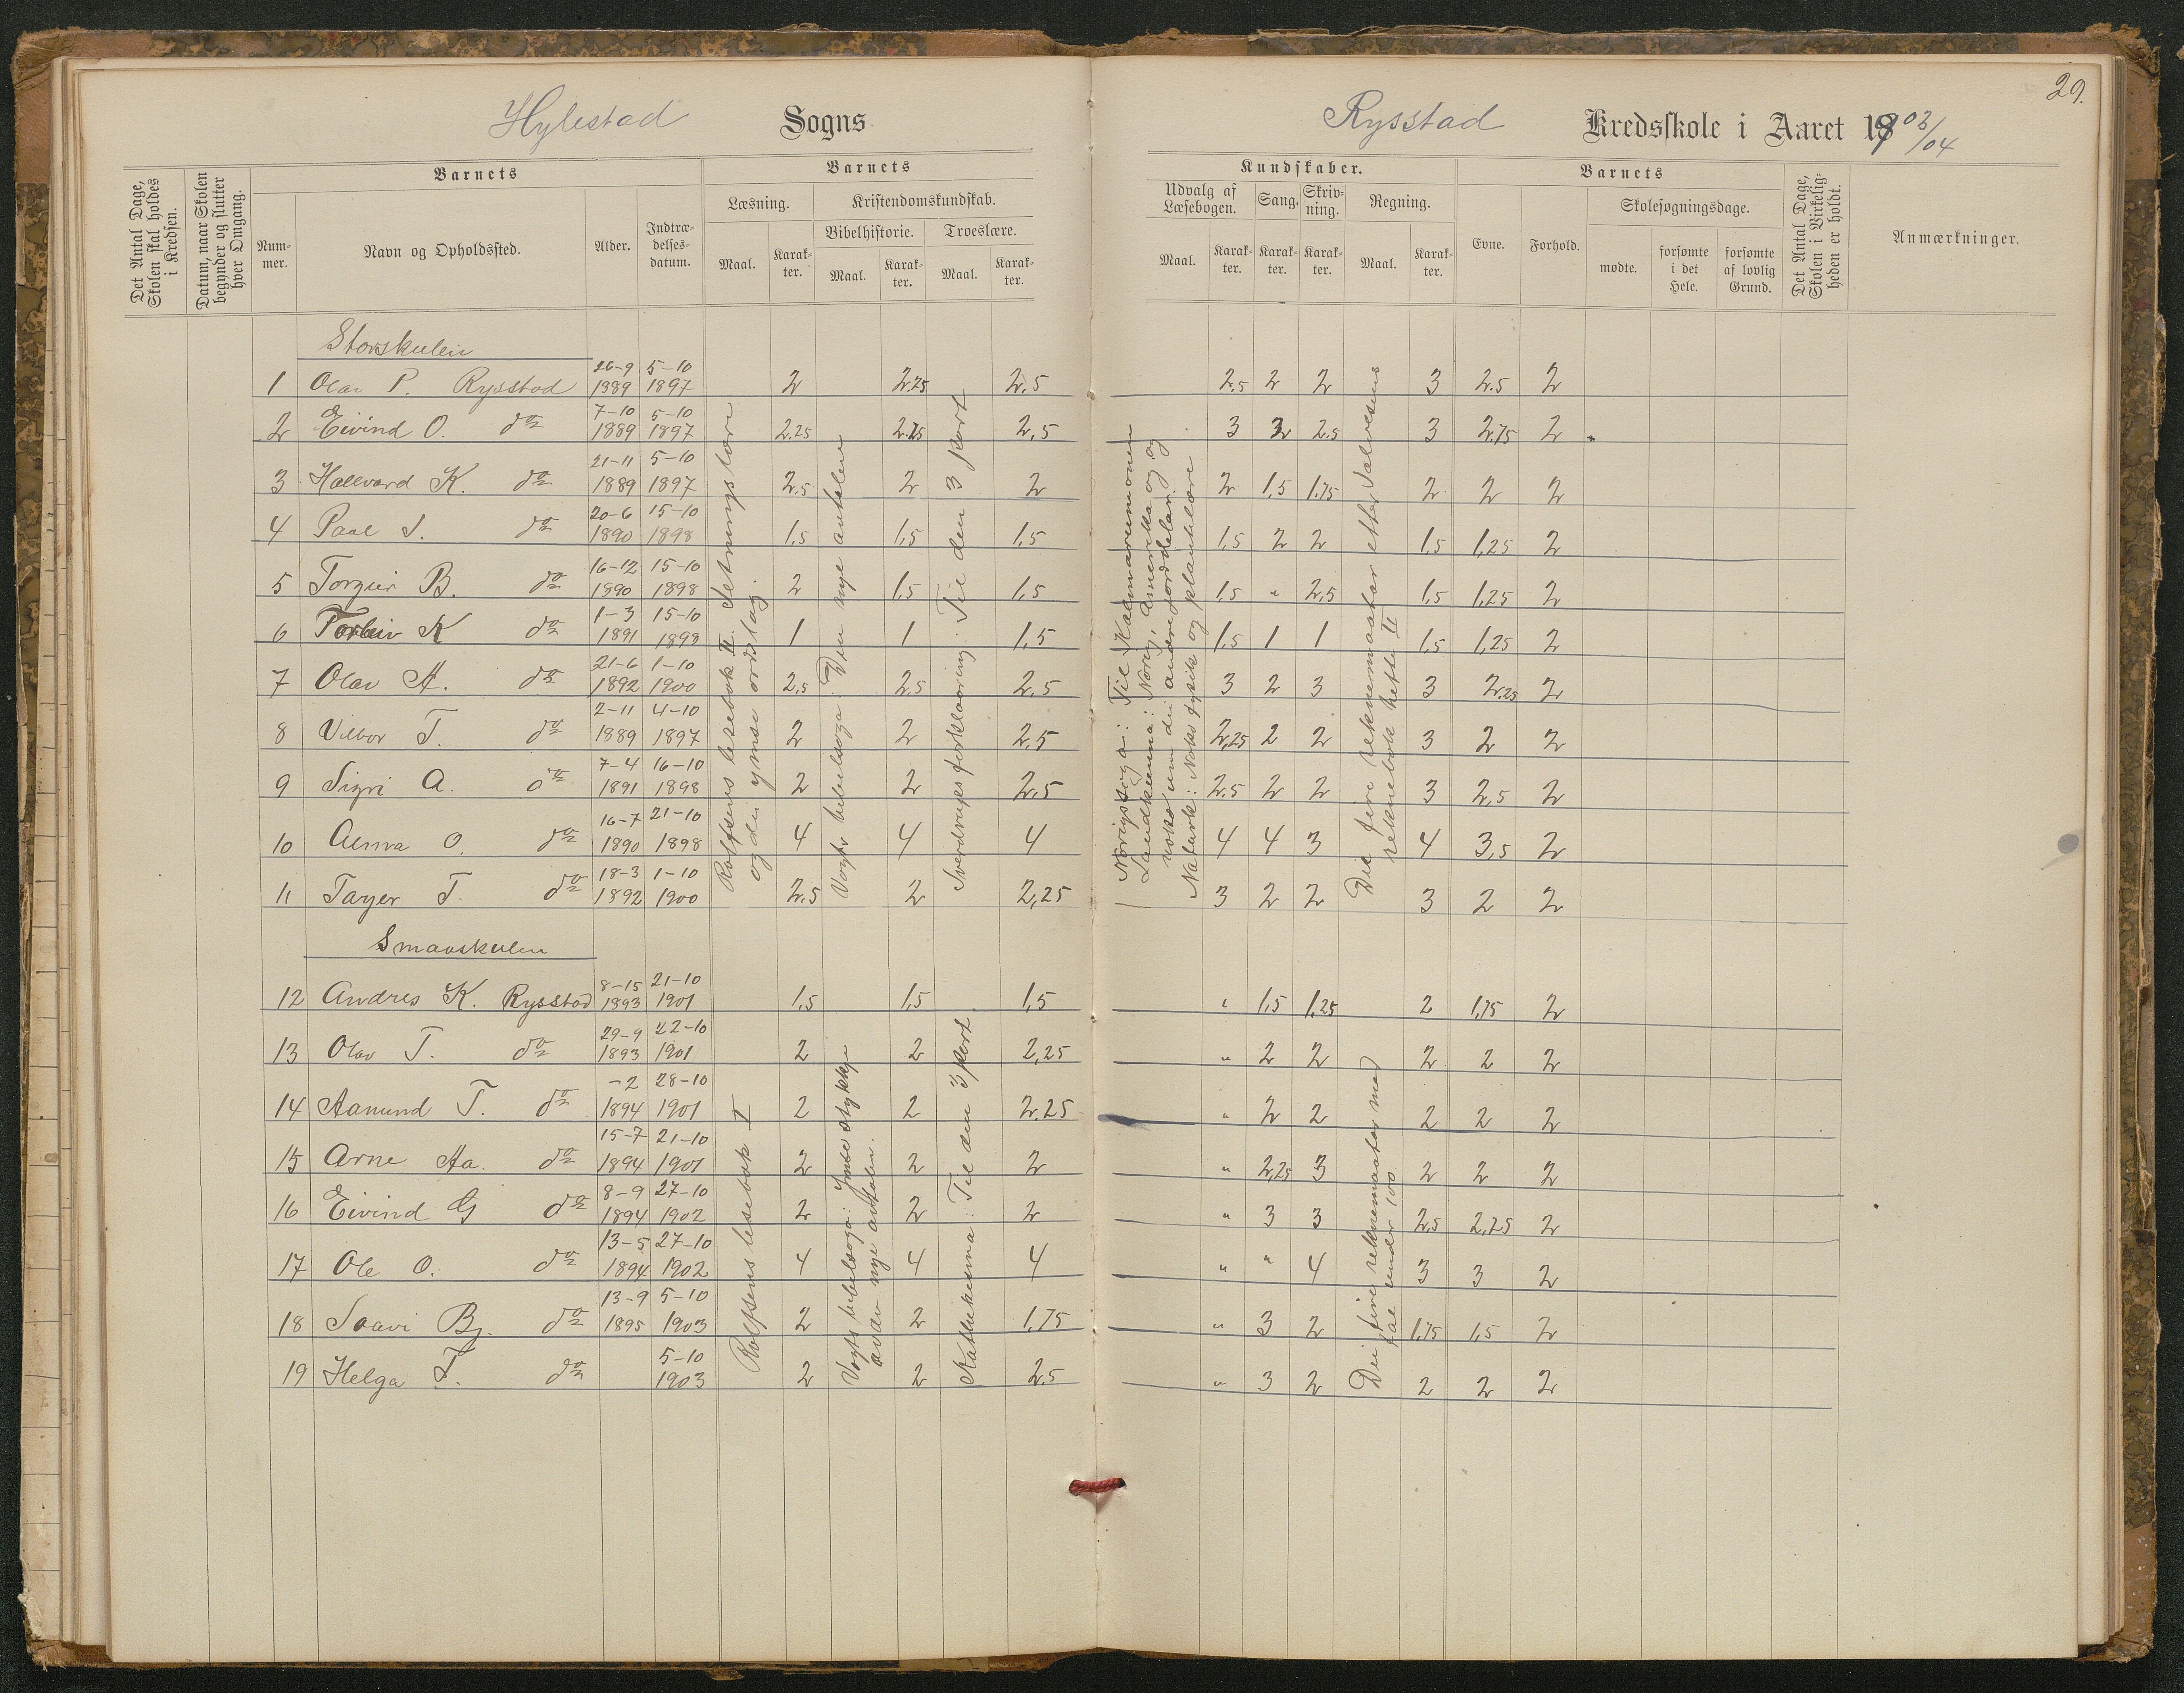 29.
Hylestad Sogns
Rysstad Kredsskole i Aaret 1903/04
Det Antal Dage, Skolen skal holdes i Kredsen.
Datum, naar Skolen begynder og slutter hver Omgang.
Barnets
Barnets
Nummer.
Navn og Opholdssted.
Alder.
Indtrædelsesdatum.
Læsning.
Kristendomskundskab.
Bibelhistorie.
Troeslære.
Maal. Karakter. Maal. Karakter. Maal. Karakter.
Kundskaber.
Barnets
Udvalg af Læsebogen.
Sang.
Skrivning.
Regning.
Maal. Karakter. Karakter. Karakter. Maal. Karakter.
Evne.
Forhold.
Skolesøgningsdage.
mødte.
forsømte i det Hele.
forsømte af lovlig Grund.
Det Antal Dage, Skolen i Virkeligheden er holdt.
Anmærkninger.
Storskulen
1 Olav P. Rysstad 26-9 1889 5-10 1897 2 2.25 2,5 2,5 2 2 3 2.5 2
2 Eivind O. do 7-10 1889 5-10 1897 2,25 2.25 2,5 3 3 2.5 3 2,75 2
3 Hallvard K. do 21-11 1889 5-10 1897 2.5 2 2 2 1,5 1,75 2 2 2
4 Paal S. do 20-6 1890 15-10 1898 1,5 1,5 1,5 1,5 2 2 1,5 1,25 2
5 Torgeir B. do 16-12 1890 15-10 1898 2 1,5 1,5 1,5 " 2,5 1,5 1,25 2
6 Torleiv K do 1-3 1891 15-10 1898 1 1 1,5 1,5 1 1 1,5 1,25 2
7 Olav A. do 21-6 1892 1-10 1900 2,5 2,5 2,5 3 2 3 3 2,25 2
8 Vilbor T. do 2-11 1889 4-10 1897 2 2 2,5 2,25 2 2 3 2 2
9 Sigri A. do 7-4 1891 16-10 1898 2 2 2,5 2.5 2 2 3 2,5 2
10 Alma O. do 16-7 1890 21-10 1898 4 4 4 4 4 3 4 3,5 2
11 Targer T. do 18-3 1892 1-10 1900 2.5 2 2,25 3 2 2 3 2 2
Rolfsens lesebok II. Setningslære og dei ymse ordslag.
Vogts bibelsoga: Den nye avtalen
Sverdrups forklaaring: Til den 3 part
Norigssoga: Til Kalmarunionen
Landkunna: Norig, Amerika og og noko um dei andre jorddelar.
Naturk: Noko fysik og plantelære
Dei fire reknemaatar etter Salvesens reknebok hefte II
Smaaskulen
12 Andres K. Rysstad 8-15 1893 21-10 1901 1,5 1,5 1,5 " 1,5 1,25 2 1,75 2
13 Olav T. do 29-9 1893 22-10 1901 2 2 2,25 " 2 2 2 2 2
14 Aanund T. do -2 1894 28-10 1901 2 2 2,25 " 2 2 2 2 2
15 Arne Aa. do 15-7 1894 21-10 1901 2 2 2 " 2,25 3 2 2 2
16 Eivind G do 8-9 1894 27-10 1902 2 2 2 " 3 3 2,5 2,25 2
17 Ole O. do 13-5 1894 27-10 1902 4 4 4 " " 4 3 3 2
18 Saavi Bj. do 13-9 1895 5-10 1903 2 2 1,75 " 3 2 1,75 1,5 2
19 Helga T. do 5-10 1903 2 2 2,5 " 3 2 2 2 2
Rolfsens lesebok I
Vogts bibelsoga: Ymse stykkje av den nye avtalen.
Katekisma: Til den 3 part
Dei fire reknemaatar med tal under 100